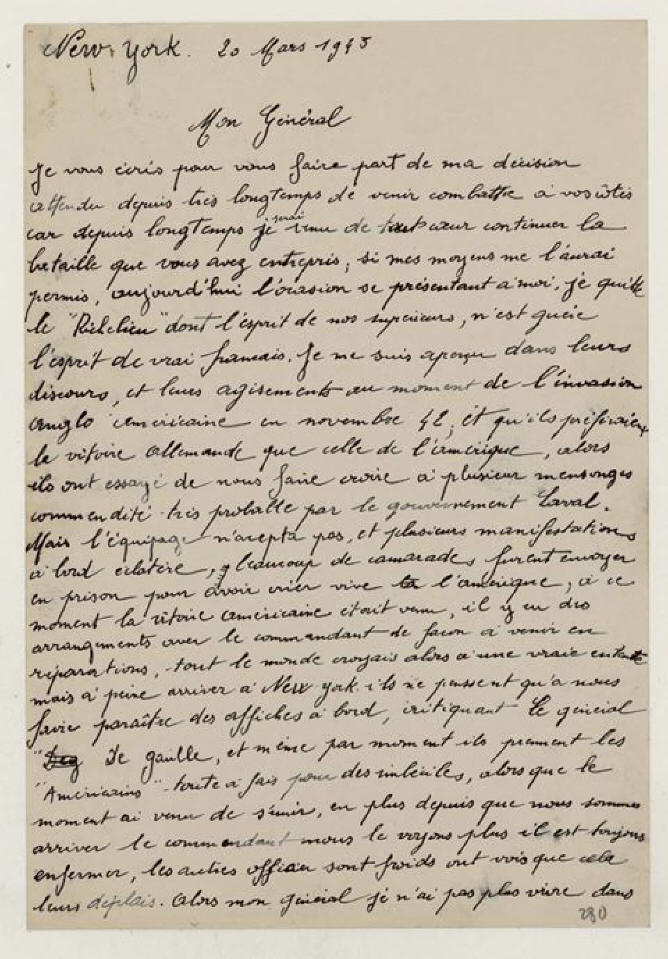 New York. 20 Mars 1943
Mon Général
Je vous écris pour vous faire part de ma décision
attendu depuis très longtemps de venir combattre a vos côtés
car depuis longtemps je serai venu de tout cœur continuer la
bataille que vous avez entrepris, si mes moyens me l'aurai
permis, aujourd'hui l'ocasion se présentant a moi, je quitte
le "Richelieu" dont l'esprit de nos supérieurs, n'est guéie
l'esprit de vrai français. Je me suis aperçu dans leurs
discours, et leurs agisements au moment de l'invasion
anglo américaine en novembre 42, et qu'ils préféraient
la vitoire allemande que celle de l'amérique, alors
ils ont essayé de nous faire croire a plusieur mensonges
commendité très probable par le gouvernement Laval.
Mais l'équipage n'acepta pas, et plusieurs manifestations
a bord éclatère, beaucoup de camarades furent envoyer
en prison pour avoir crier vive la l'amérique, a ce
moment la vitoire américaine étant venu, il y eu des
arrangements avec le commandant de façon a venir en
réparations, tout le monde croyais alors a une vraie entente
mais a peine arriver a New york ils ne pensent qu'a nous
faire paraître des affiches a bord, critiquant le général
De gaulle, et même par moment ils prennent les
"Américains" toute a fais pour des imbéciles, alors que le
moment ai venu de s'unir, en plus depuis que nous sommes
arriver le commendant nous le voyons plus il est toujours
enfermer, les autres officier sont froids ont vois que cela
leurs déplais. Alors mon général je n'ai pas plus vivre dans
280